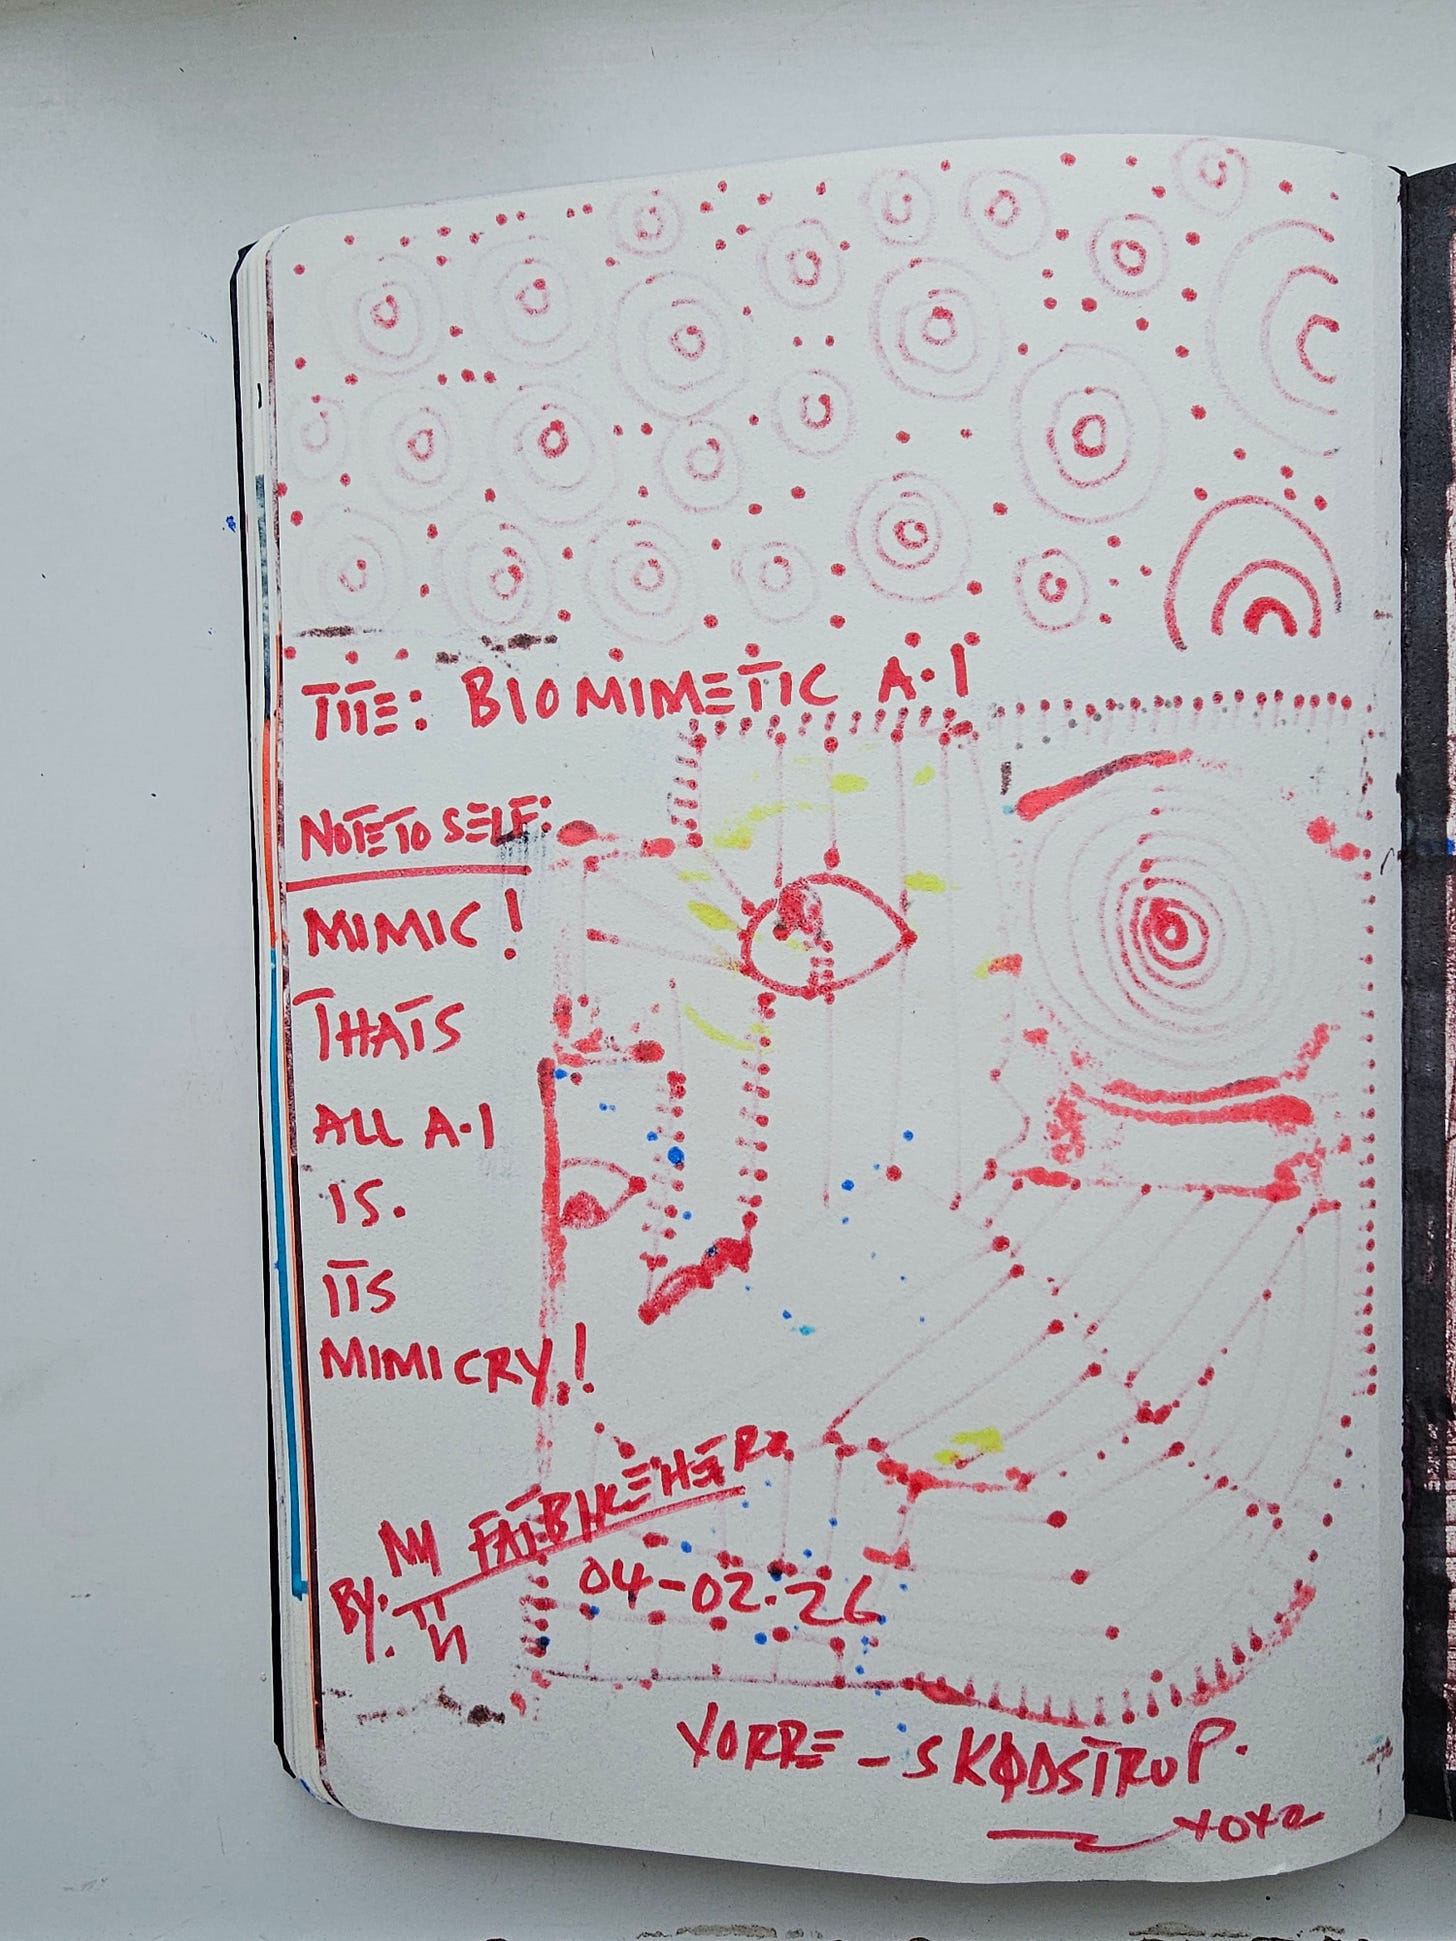 TITLE: BIOMIMETIC A·I
NOTE TO SELF:
MIMIC!
THATS
ALL A·I
IS.
ITS
MIMICRY!
BY: MY FATBIKEHERO
04-02-26
YORRE - SKØDSTRUP.